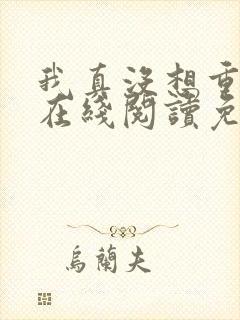 我真没想重
在綫閱讀免
烏蘭夫